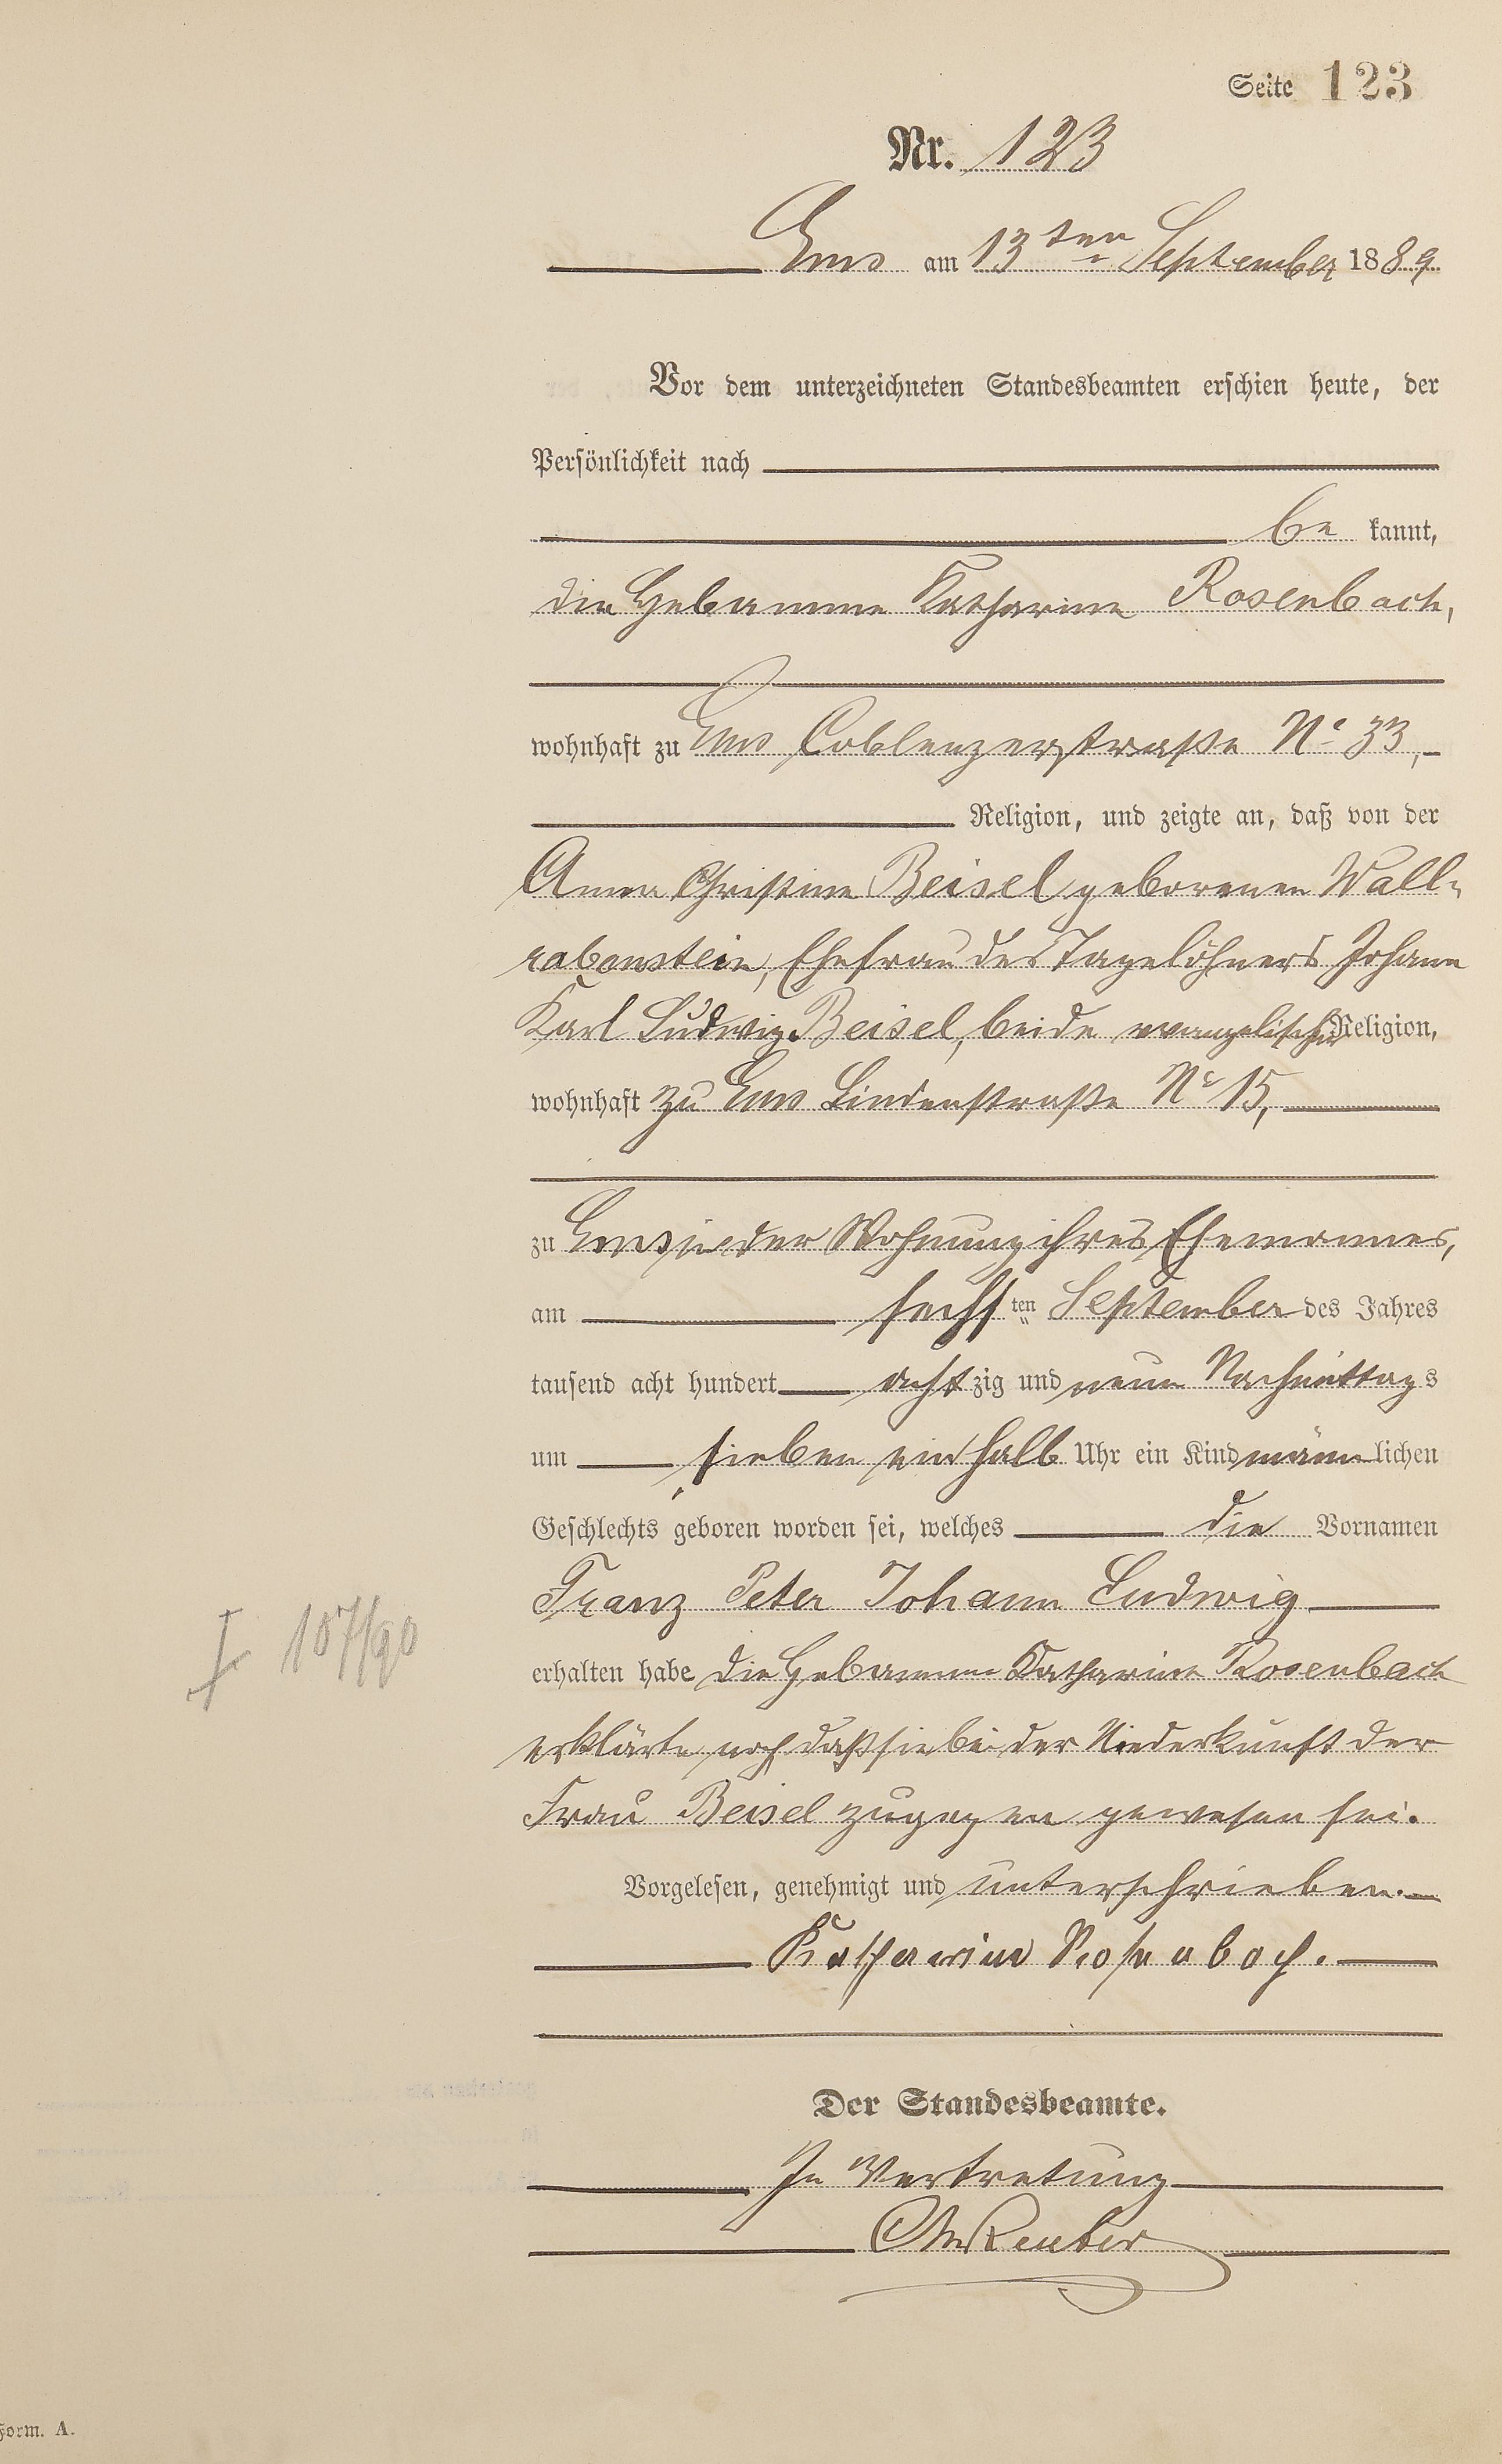 Seite 123
Nr. 123
Ems am 13ten September 1889
Vor dem unterzeichneten Standesbeamten erschien heute, der
Persönlichkeit nach
be kannt,
die Hebamme Katharine Rosenbach,
wohnhaft zu Ems Coblenzerstraße No 33,
Religion, und zeigte an, daß von der
Anna Christine Beisel geborenen Wall-
rabenstein, Ehefrau des Tagelöhners Johann
Karl Ludwig Beisel, beide evangelischer Religion,
wohnhaft zu Ems Lindenstraße No 15,
zu Ems in der Wohnung ihres Ehemannes,
am sechsten September des Jahres
tausend acht hundert achtzig und neun Nachmittags
um sieben ein halb Uhr ein Kind männlichen
Geschlechts geboren worden sei, welches die Vornamen
Franz Peter Johann Ludwig
erhalten habe die Hebamme Katharine Rosenbach
erklärte noch daß sie bei der Niederkunft der
Frau Beisel zugegen gewesen sei.
Vorgelesen, genehmigt und unterschrieben.
Katharine Rosenbach.
† 107/90
Der Standesbeamte.
In Vertretung
Reuter
Form. A.